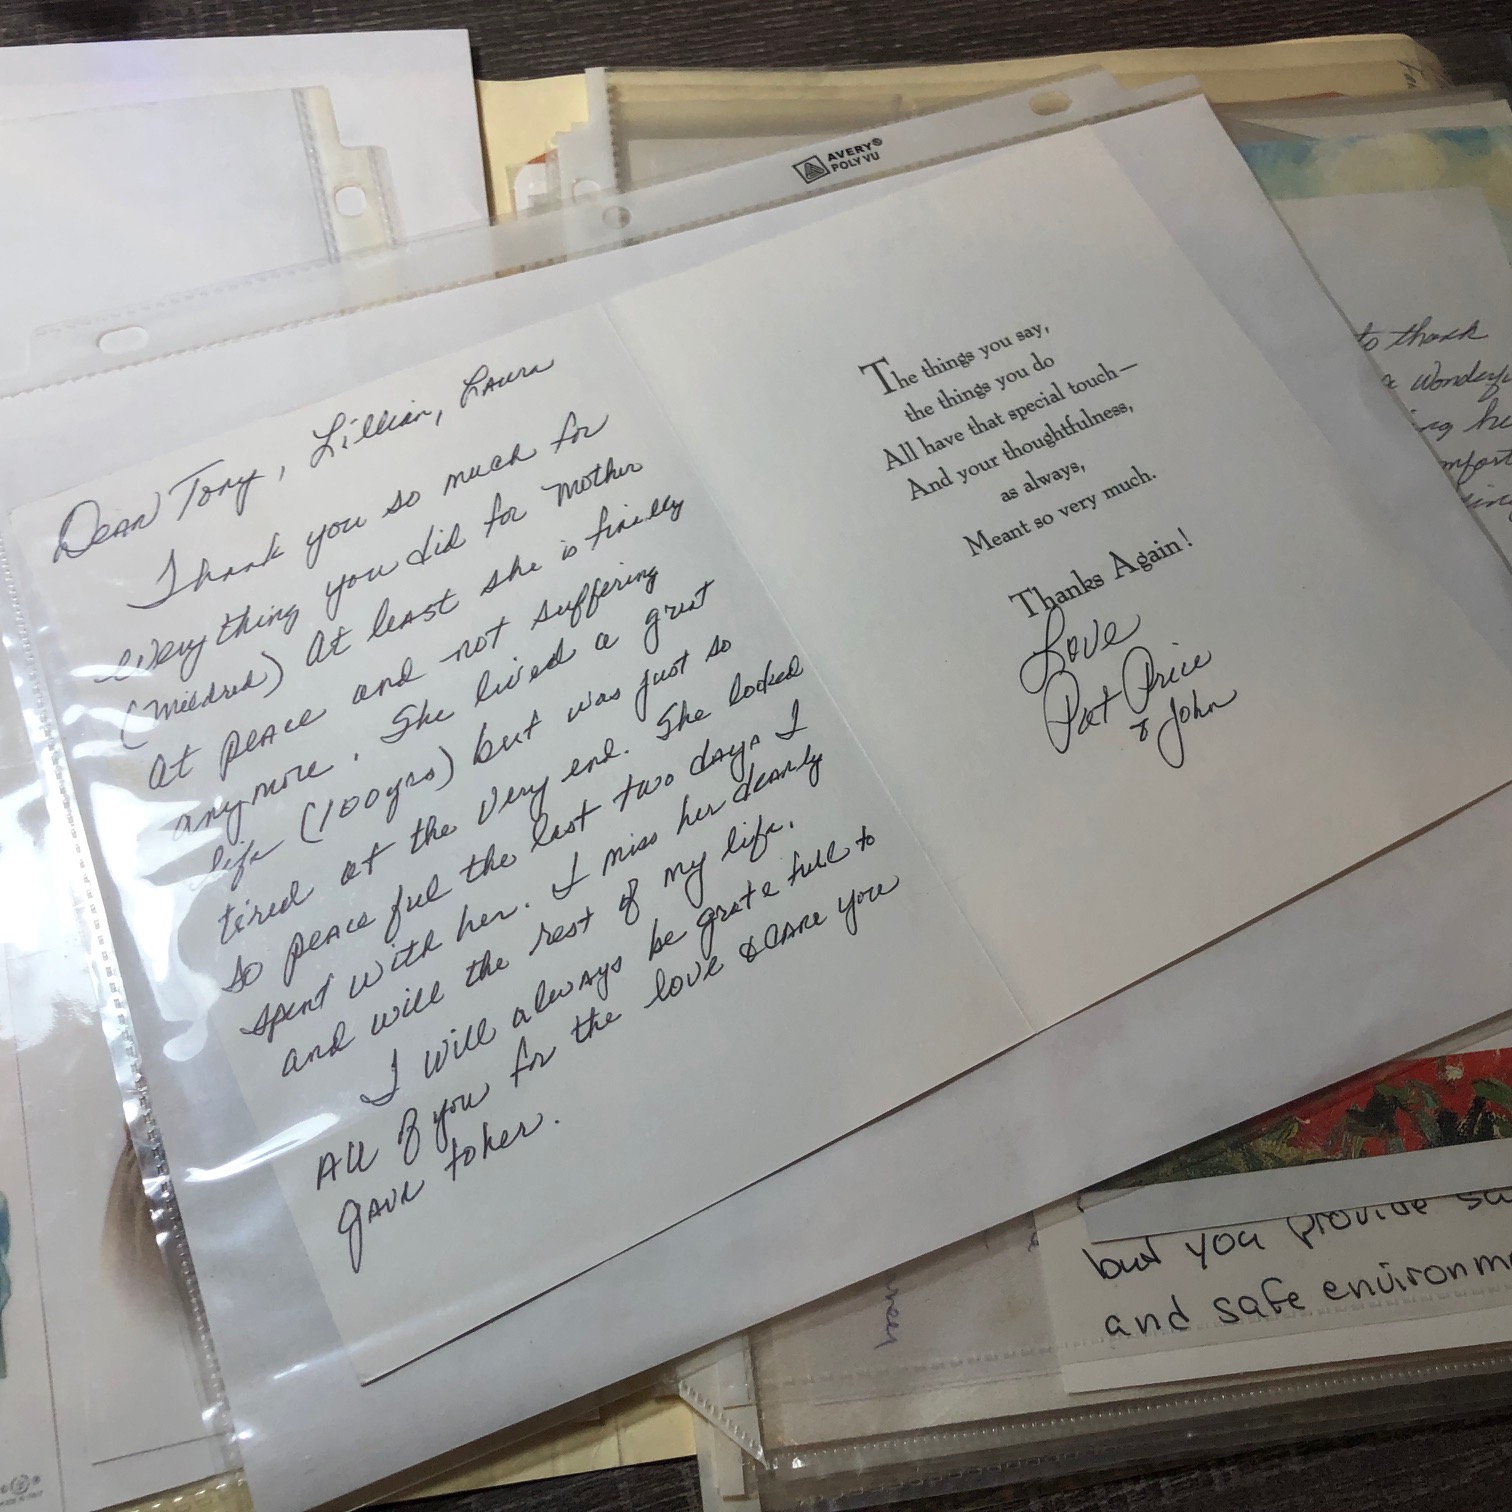 AVERY®
POLY VU
Dear Tony, Lillian, Laura
Thank you so much for
everything you did for Mother
(Mildred) At least she is finally
at peace and not suffering
anymore. She lived a great
life (100yrs) but was just so
tired at the very end. She looked
so peaceful the last two days I
spent with her. I miss her dearly
and will the rest of my life.
I will always be grate full to
All of you for the love & care you
gave to her.
The things you say,
the things you do
All have that special touch—
And your thoughtfulness,
as always,
Meant so very much.
Thanks Again!
Love
Pat Price
& John
to thank
a wonderfu
ing he
mfort
but you provide sa
and safe environm